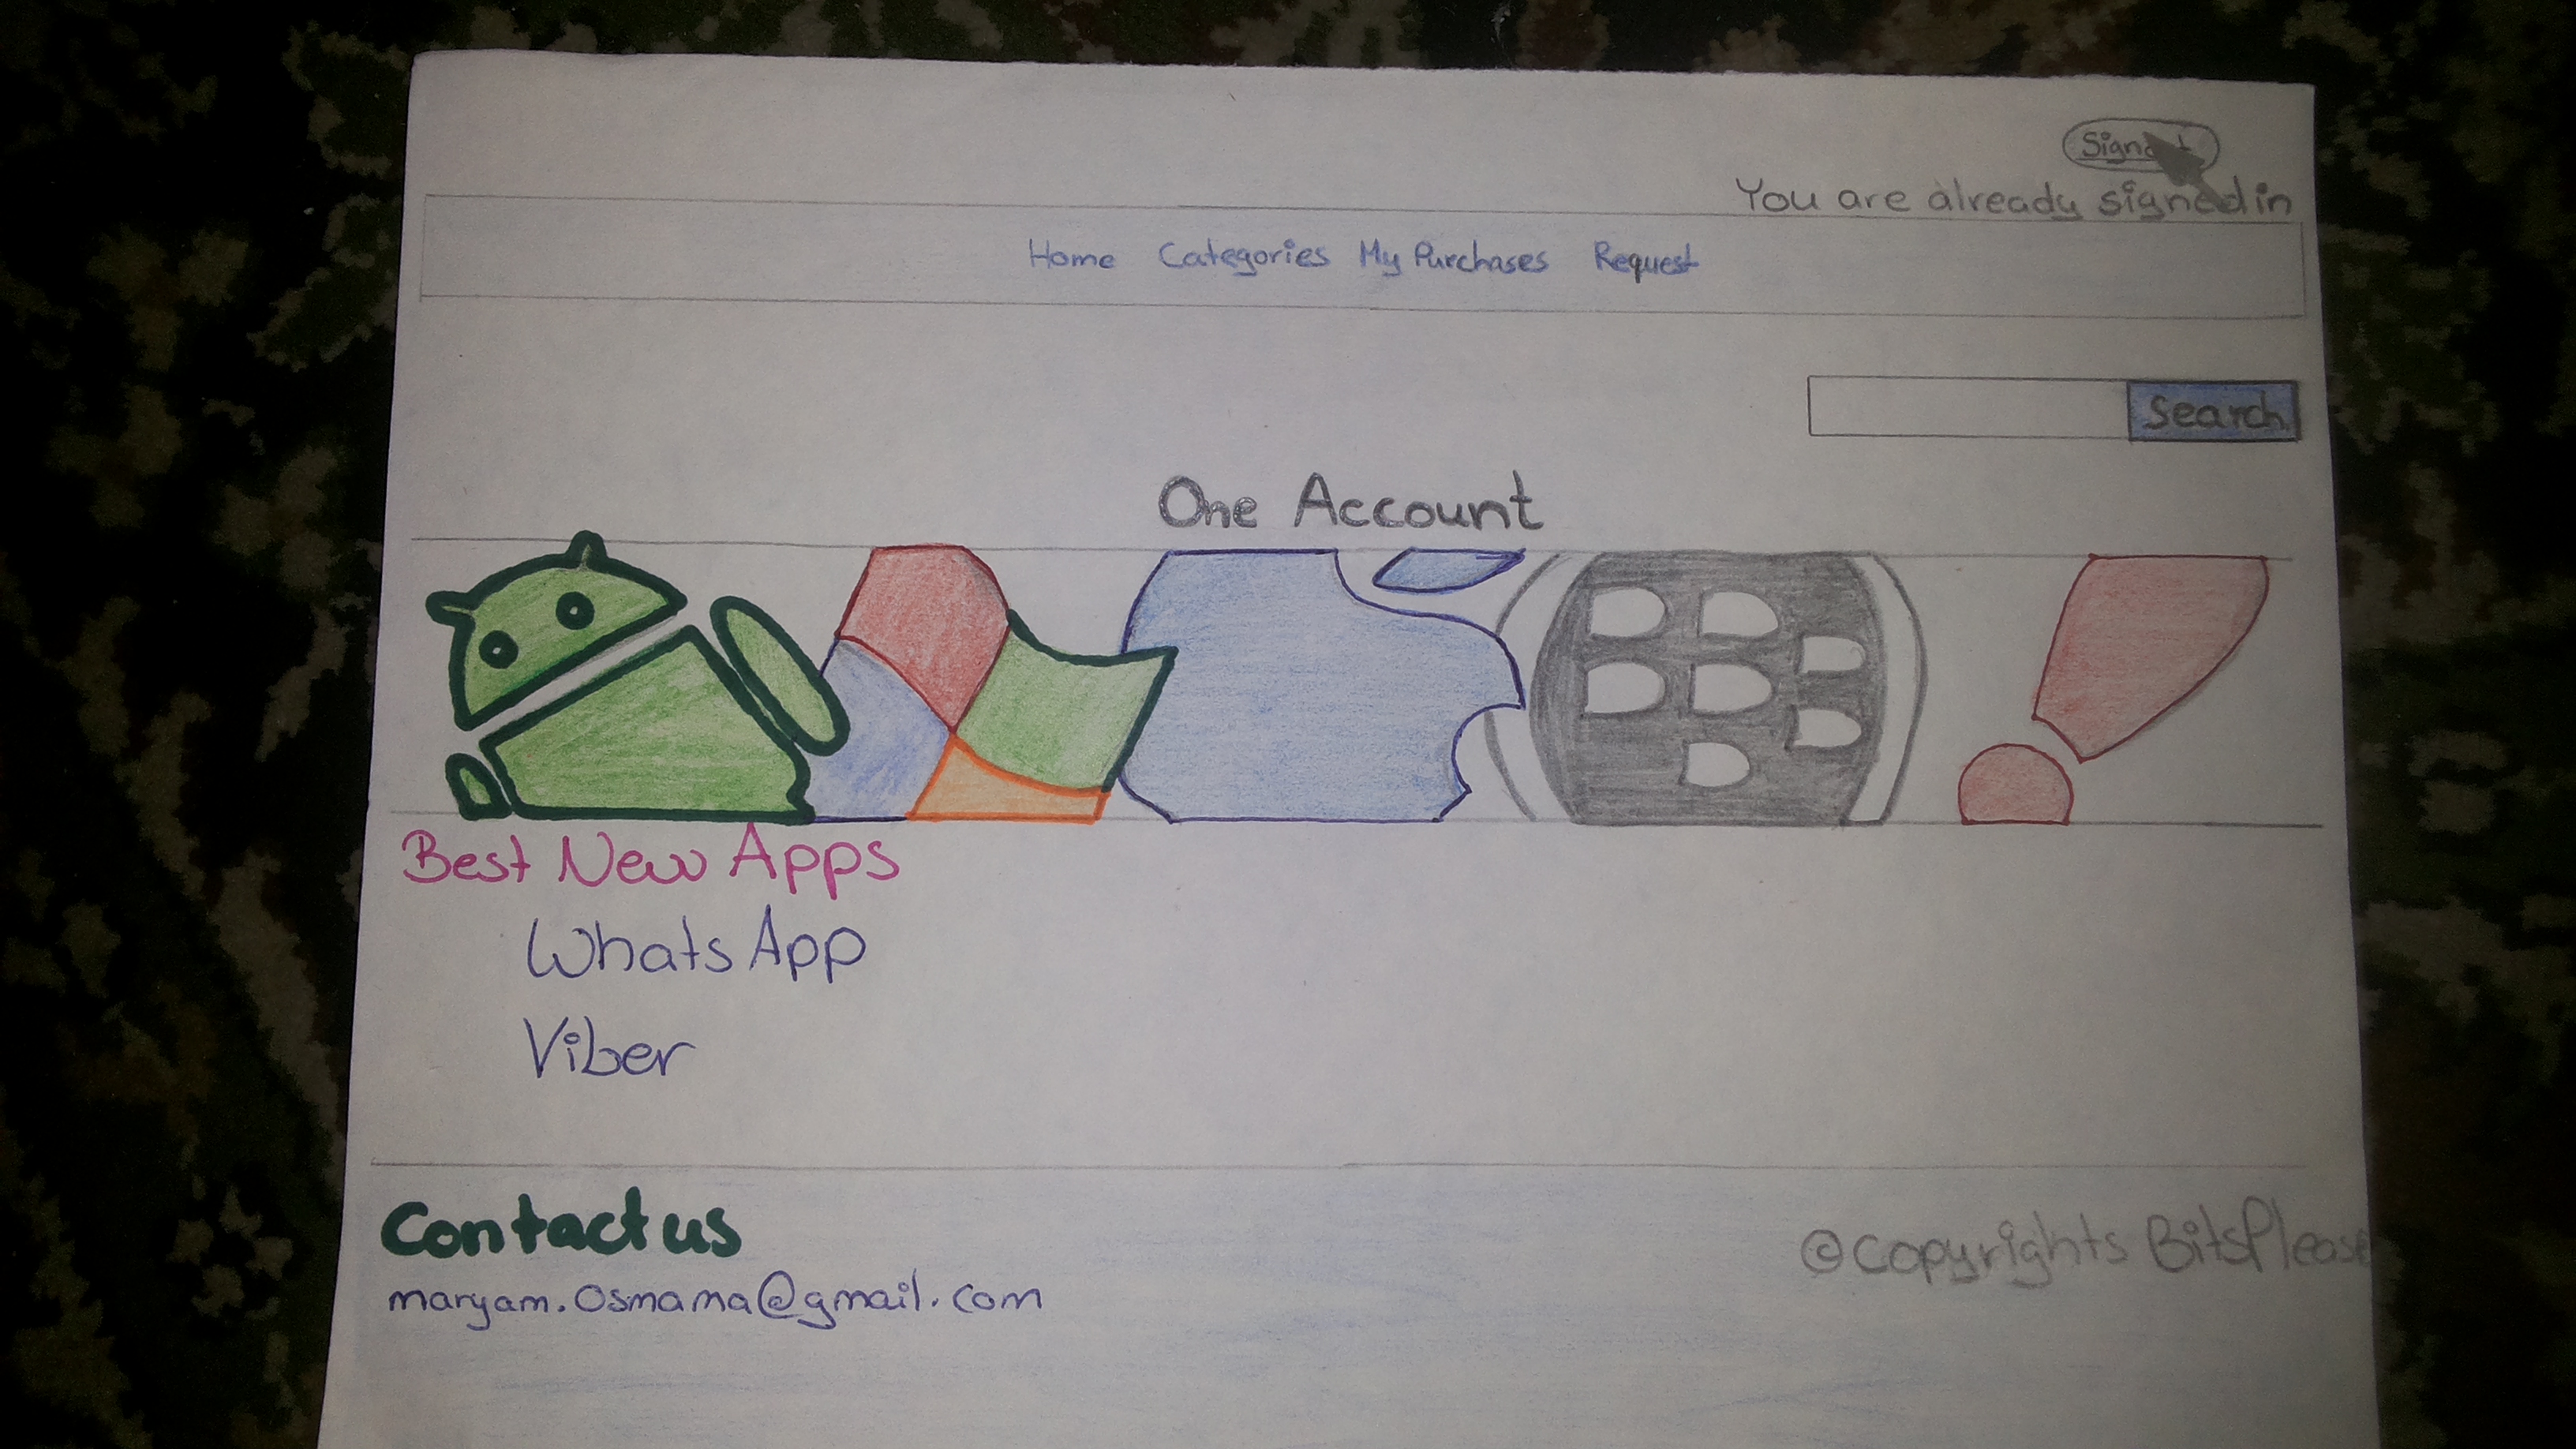 You are already signed in
Home Categories My Purchases Request
Search
One Account
Best New Apps
WhatsApp
Viber
Contact us
maryam.osmama@gmail.com
©Copyrights BitsPlease